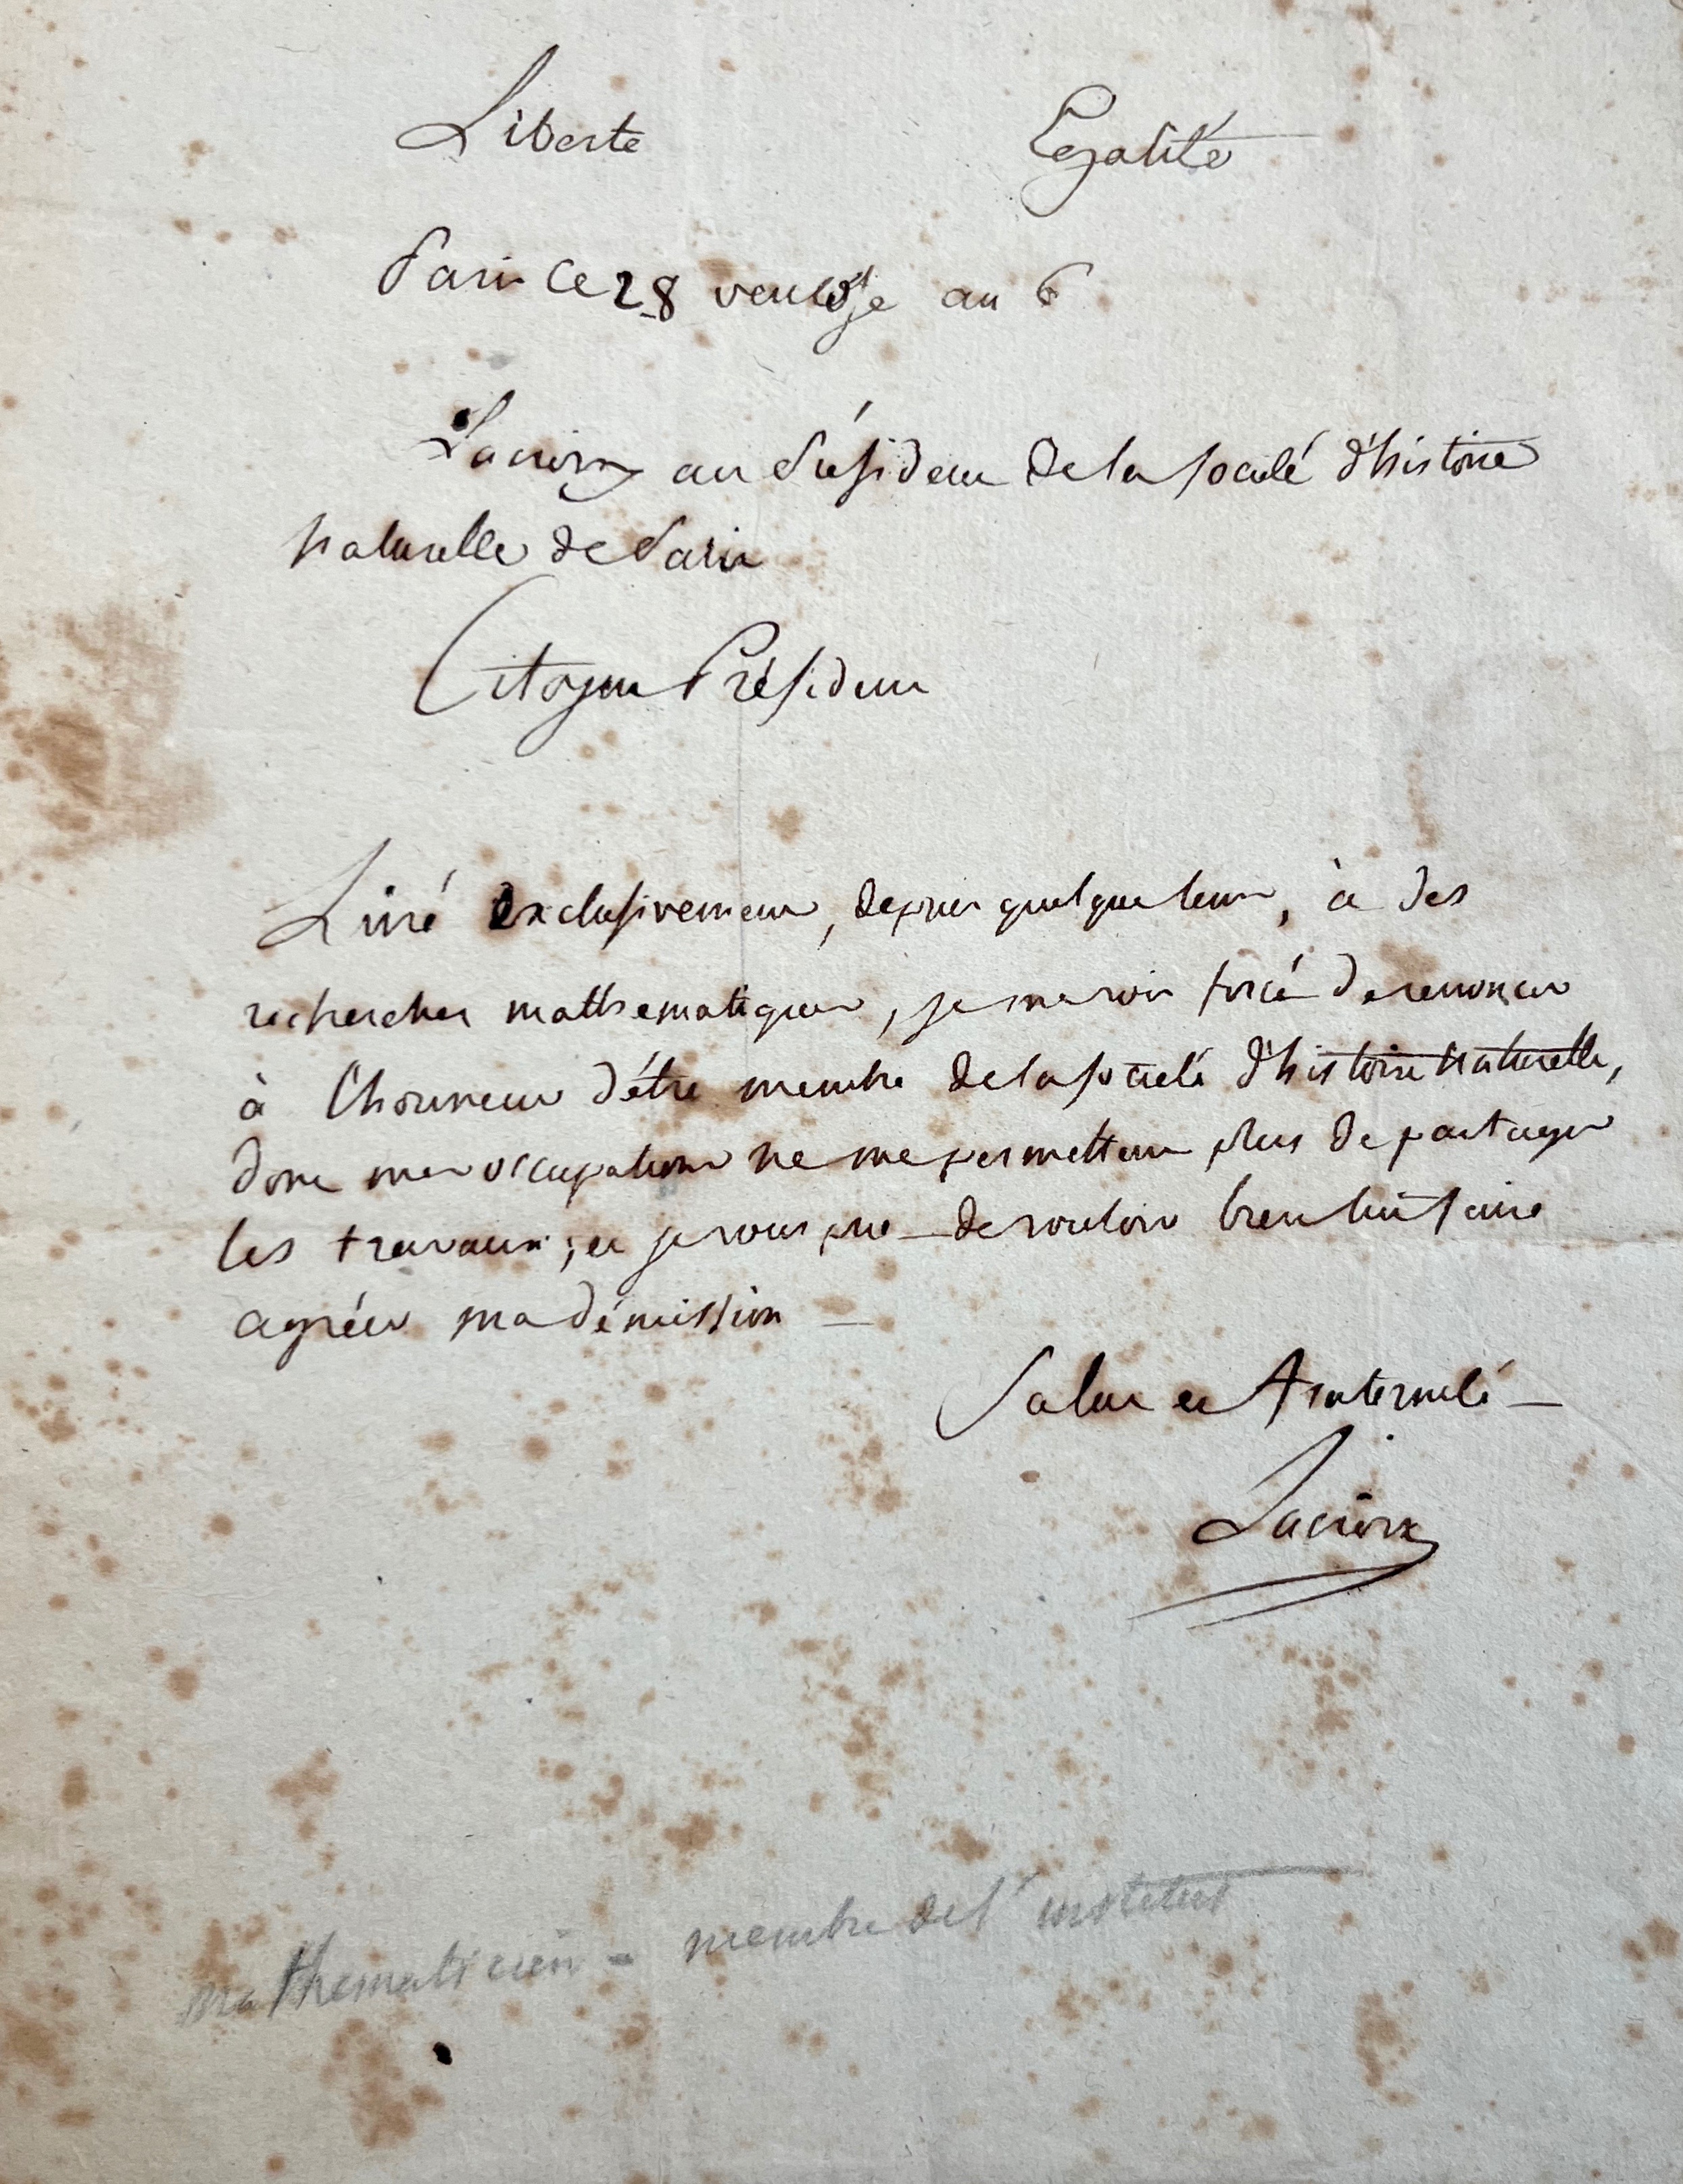 Liberté Egalité
Paris ce 28 ventose an 6
Lacroix au Président de la société d'histoire
naturelle de Paris
Citoyen Président
Livré exclusivement, depuis quelque tems, à des
recherches mathematiques, je me vois forcé de renoncer
à l'honneur d'être membre de la société d'histoire naturelle,
dont mes occupations ne me permettent plus de partager
les travaux; et je vous prie de vouloir bien lui faire
agréer ma démission
Salut et fraternité
Lacroix
mathematicien - membre de l'institut